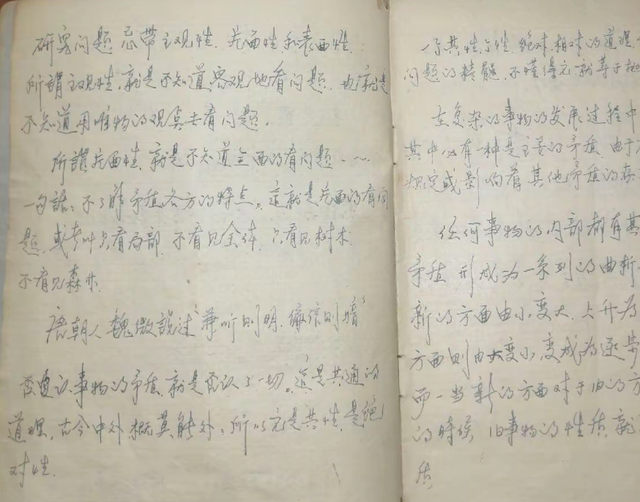 研究问题忌带主观性、片面性和表面性
所谓主观性，就是不知道客观地看问题，也就是
不知道用唯物的观点去看问题。
所谓片面性，就是不知道全面的看问题……
一句话，不了解矛盾各方的特点。这就是片面的看问
题，或者叫只看局部，不看见全体，只看见树木
不看见森林
唐朝人魏徵说过"兼听则明，偏信则暗"
否认事物的矛盾就是否认了一切。这是共通的
道理，古今中外概莫能外，所以它是共性，是绝
对性。
一系共性个性、绝对相对的道理，
问题的精髓，不懂得它，就等于抛
在复杂的事物的发展过程中
其中必有一种是主要的矛盾，由于
规定或影响着其他矛盾的存
任何事物的内部都有其
矛盾，形成为一系列的曲折
新的方面由小变大，上升为
方面则由大变小，变成为逐步
而一当新的方面对于旧的方
的时候，旧事物的性质就
质